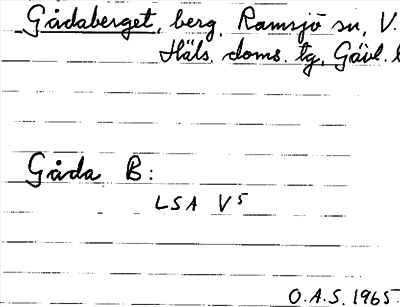 Gådaberget, berg, Ramsjö sn, V.
Häls. doms. tg, Gävl.
Gåda B:
LSA V5
O.A.S. 1965.